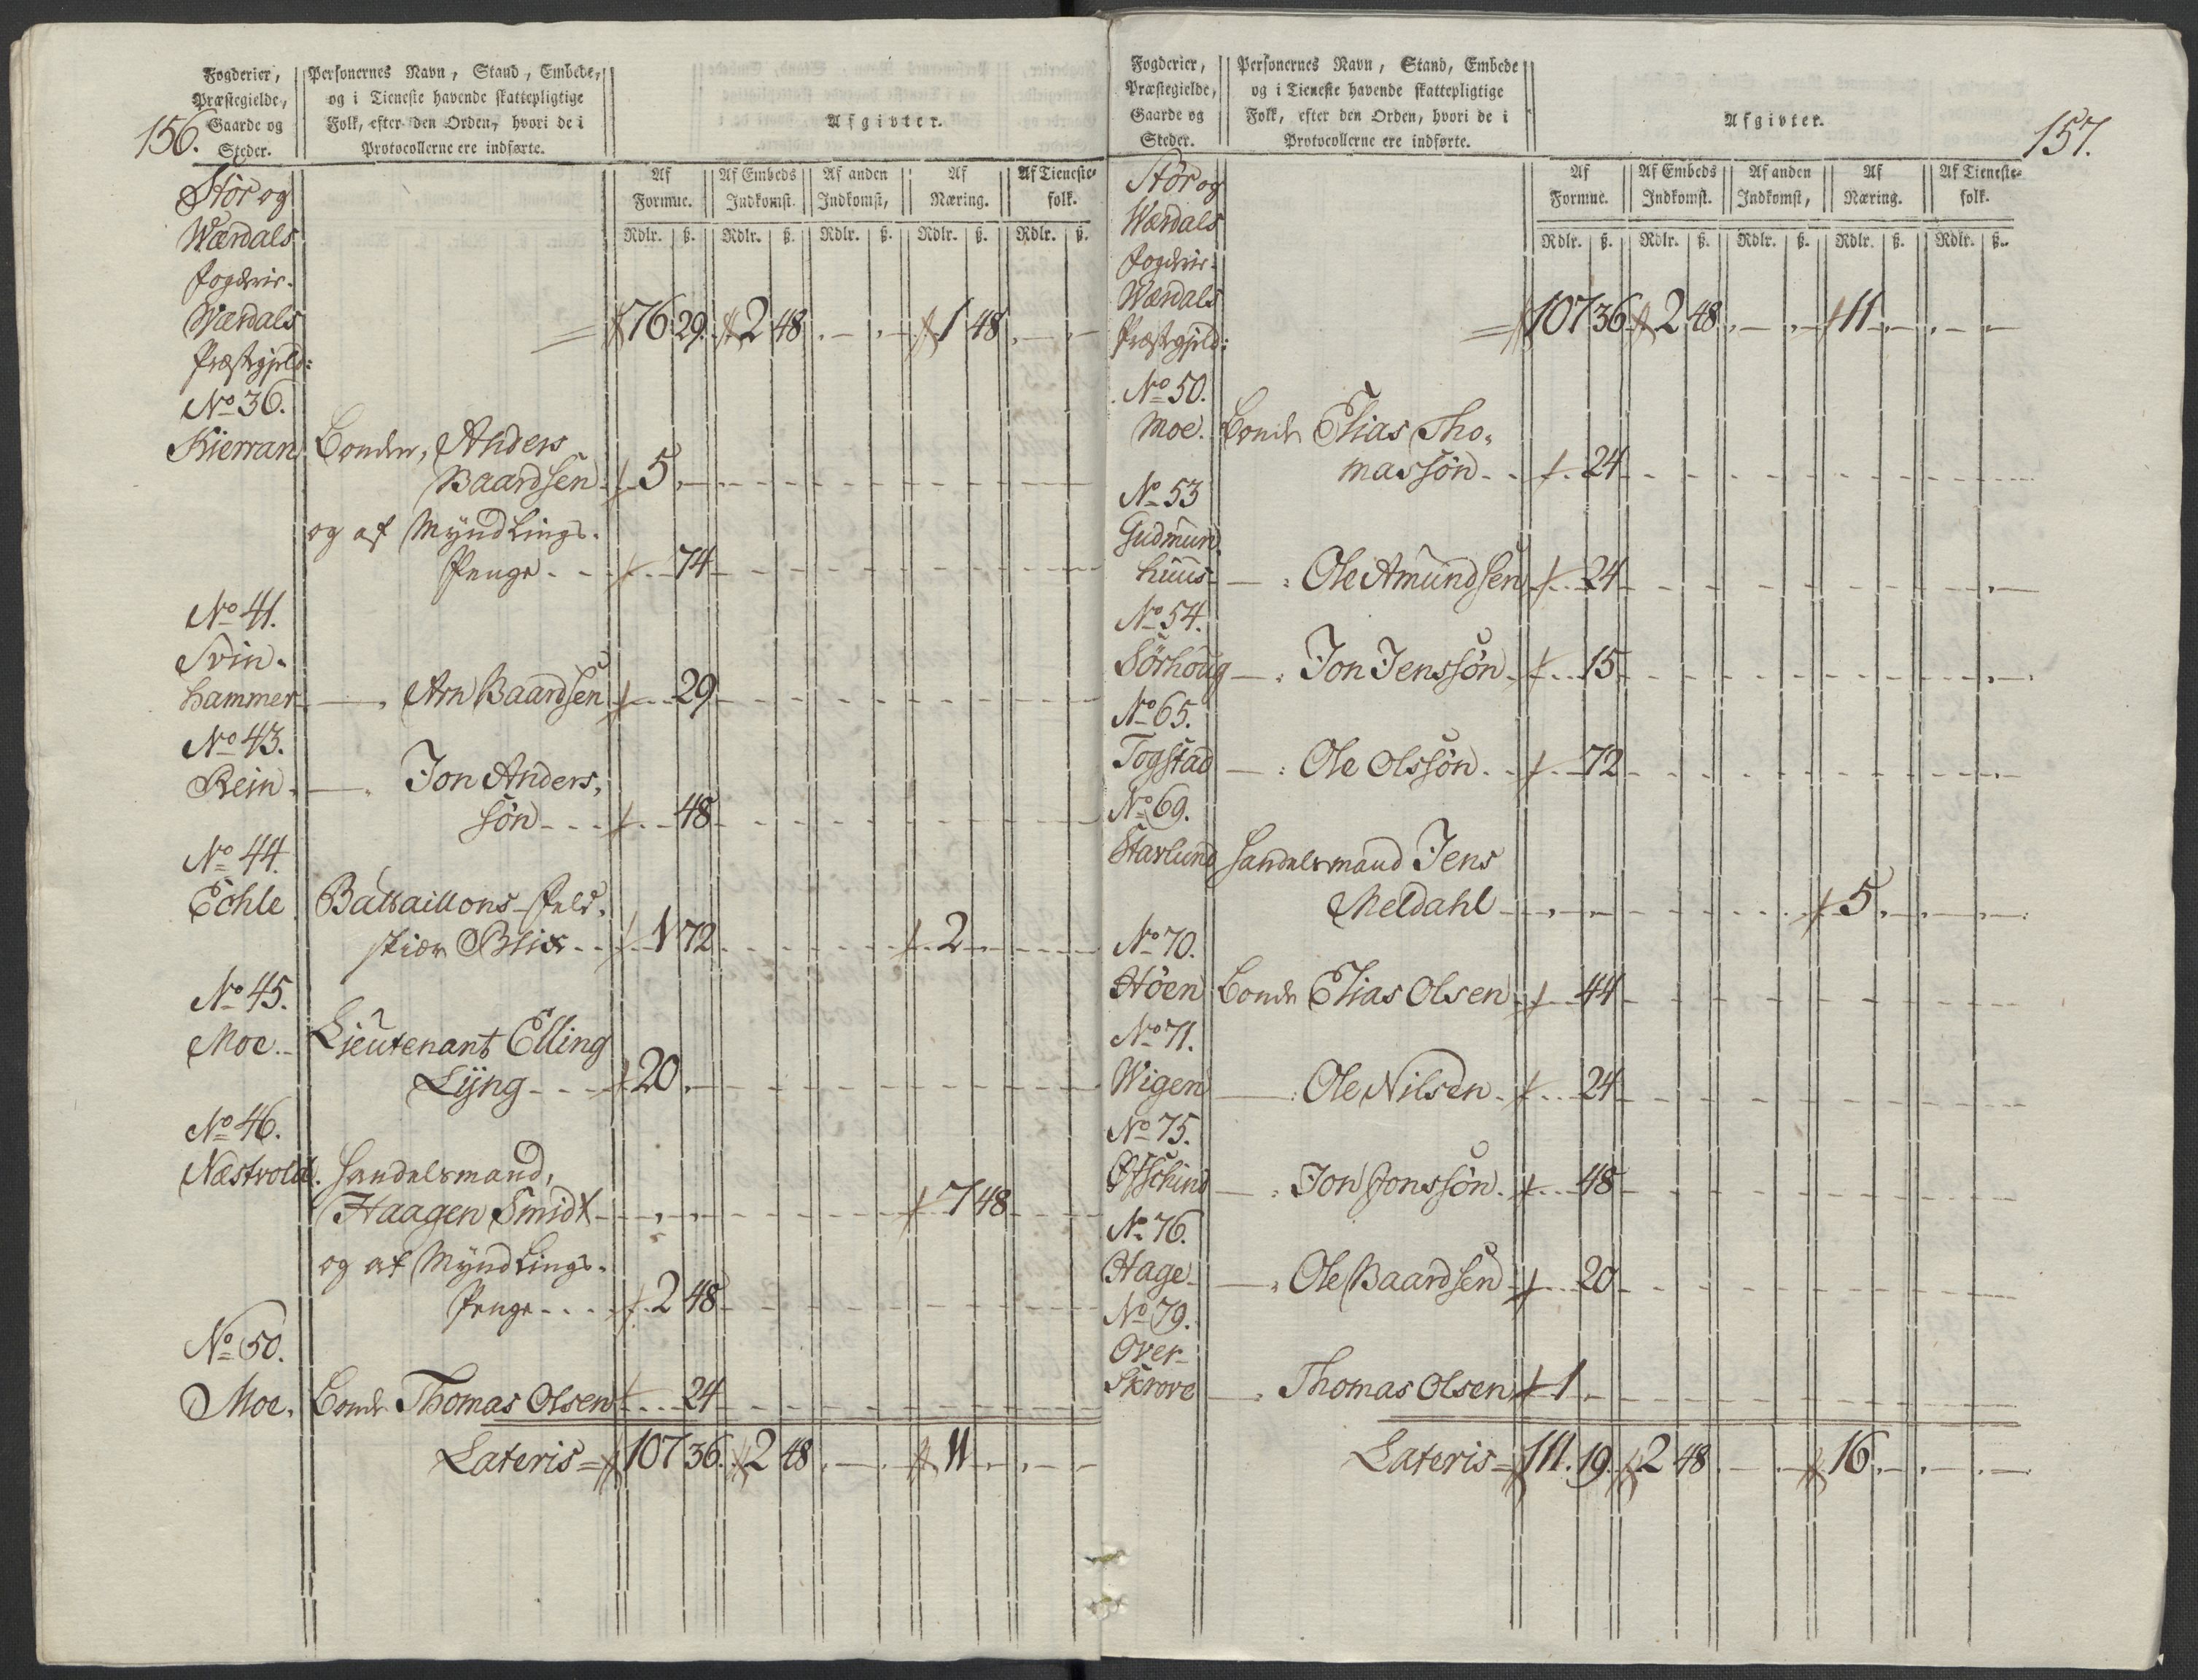 156.
Fogderier,
Præstegielde,
Gaarde og
Steder.
Personernes Navn, Stand, Embede,
og i Tieneste havende skattepligtige
Folk, efter den Orden, hvori de i
Protocollerne ere indførte.
Afgivter.
Af Formue. Af Embeds Indkomst. Af anden Indkomst, Af Næring. Af Tieneste-folk.
Rdlr. ß. Rdlr. ß. Rdlr. ß. Rdlr. ß. Rdlr. ß.
Stör og
Wærdals
fogderie.
Wærdals
Præstgjeld:
76 29. 2 48 1 48
No 36.
Kierran Bonden, Anders
Baardsen 5
og af Myndlings-
Penge 74
No 41.
Svin-
hammer Arn Baardsen 29
No 43.
Rein Jon Anders,
søn 48
No 44.
Echle Battaillons-Feld-
skiær Blix 1 72 2
No 45.
Moe Lieutenant Elling
Lyng 20
No 46.
Næstvold. Handelsmand,
Haagen Smidt 7 48
og af Myndlings-
Penge 2 48
No 50.
Moe. Bonde Thomas Olsen 24
Lateris 107 36. 2 48 11
157.
Fogderier,
Præstegielde,
Gaarde og
Steder.
Personernes Navn, Stand, Embede
og i Tieneste havende skattepligtige
Folk, efter den Orden, hvori de i
Protocollerne ere indførte.
Afgivter.
Af Formue. Af Embeds Indkomst. Af anden Indkomst, Af Næring. Af Tieneste-folk.
Rdlr. ß. Rdlr. ß. Rdlr. ß. Rdlr. ß. Rdlr. ß.
Stör og
Wærdals
fogderie:
Wærdals
Præstgjeld:
107 36 2 48 11
No 50.
Moe. Bonde Elias Tho-
massøn 24
No 53
Gudmun-
huus Ole Amundsen 24
No 54.
Sörhoug Jon Jenssøn 15
No 65.
Togstad Ole Olssøn 72
No 69.
Starlund Handelsmand Jens
Meldahl 5
No 70.
Höen Bonde Elias Olsen 44
No 71.
Wigen Ole Nilsen 24
No 75.
Østchind Jon Jonssøn 48
No 76.
Hage Ole Baardsen 20
No 79.
Over-
Skrove Thomas Olsen 1
Lateris 111. 19. 2 48 16